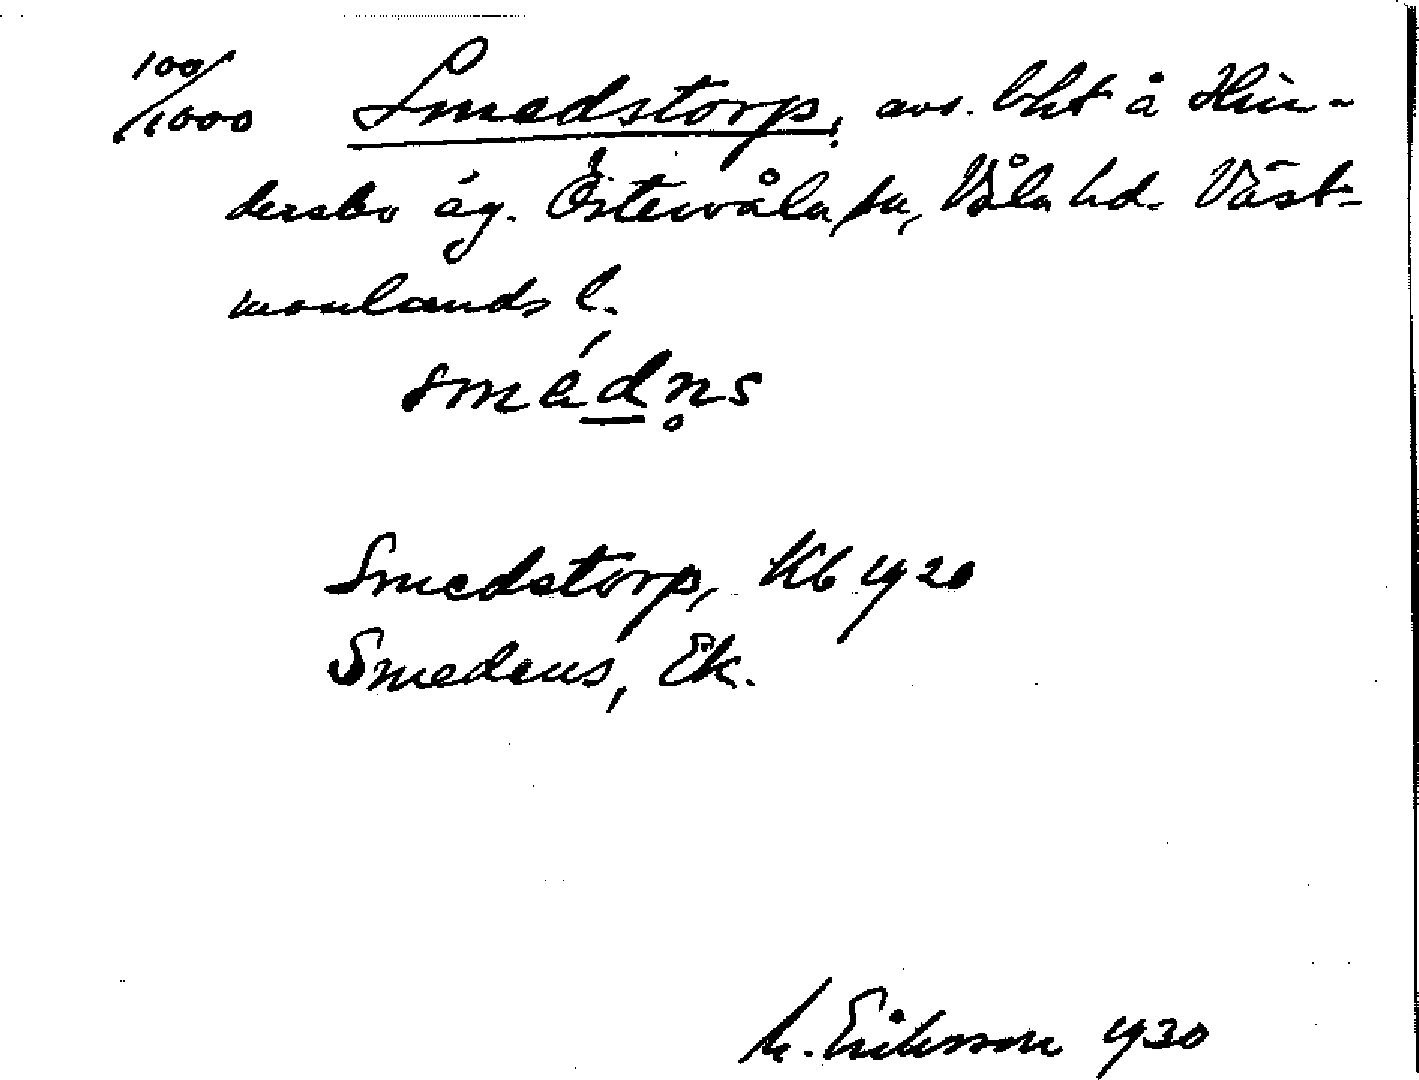 100/1000 Smedstorp, avs. lht å Hin-
dersbo äg. Östervåla sn, Våla hd. Väst-
manlands l.
smédn̥s
Smedstorp, Kb 1920
Smedens, Ek.
M. Eriksson 1930